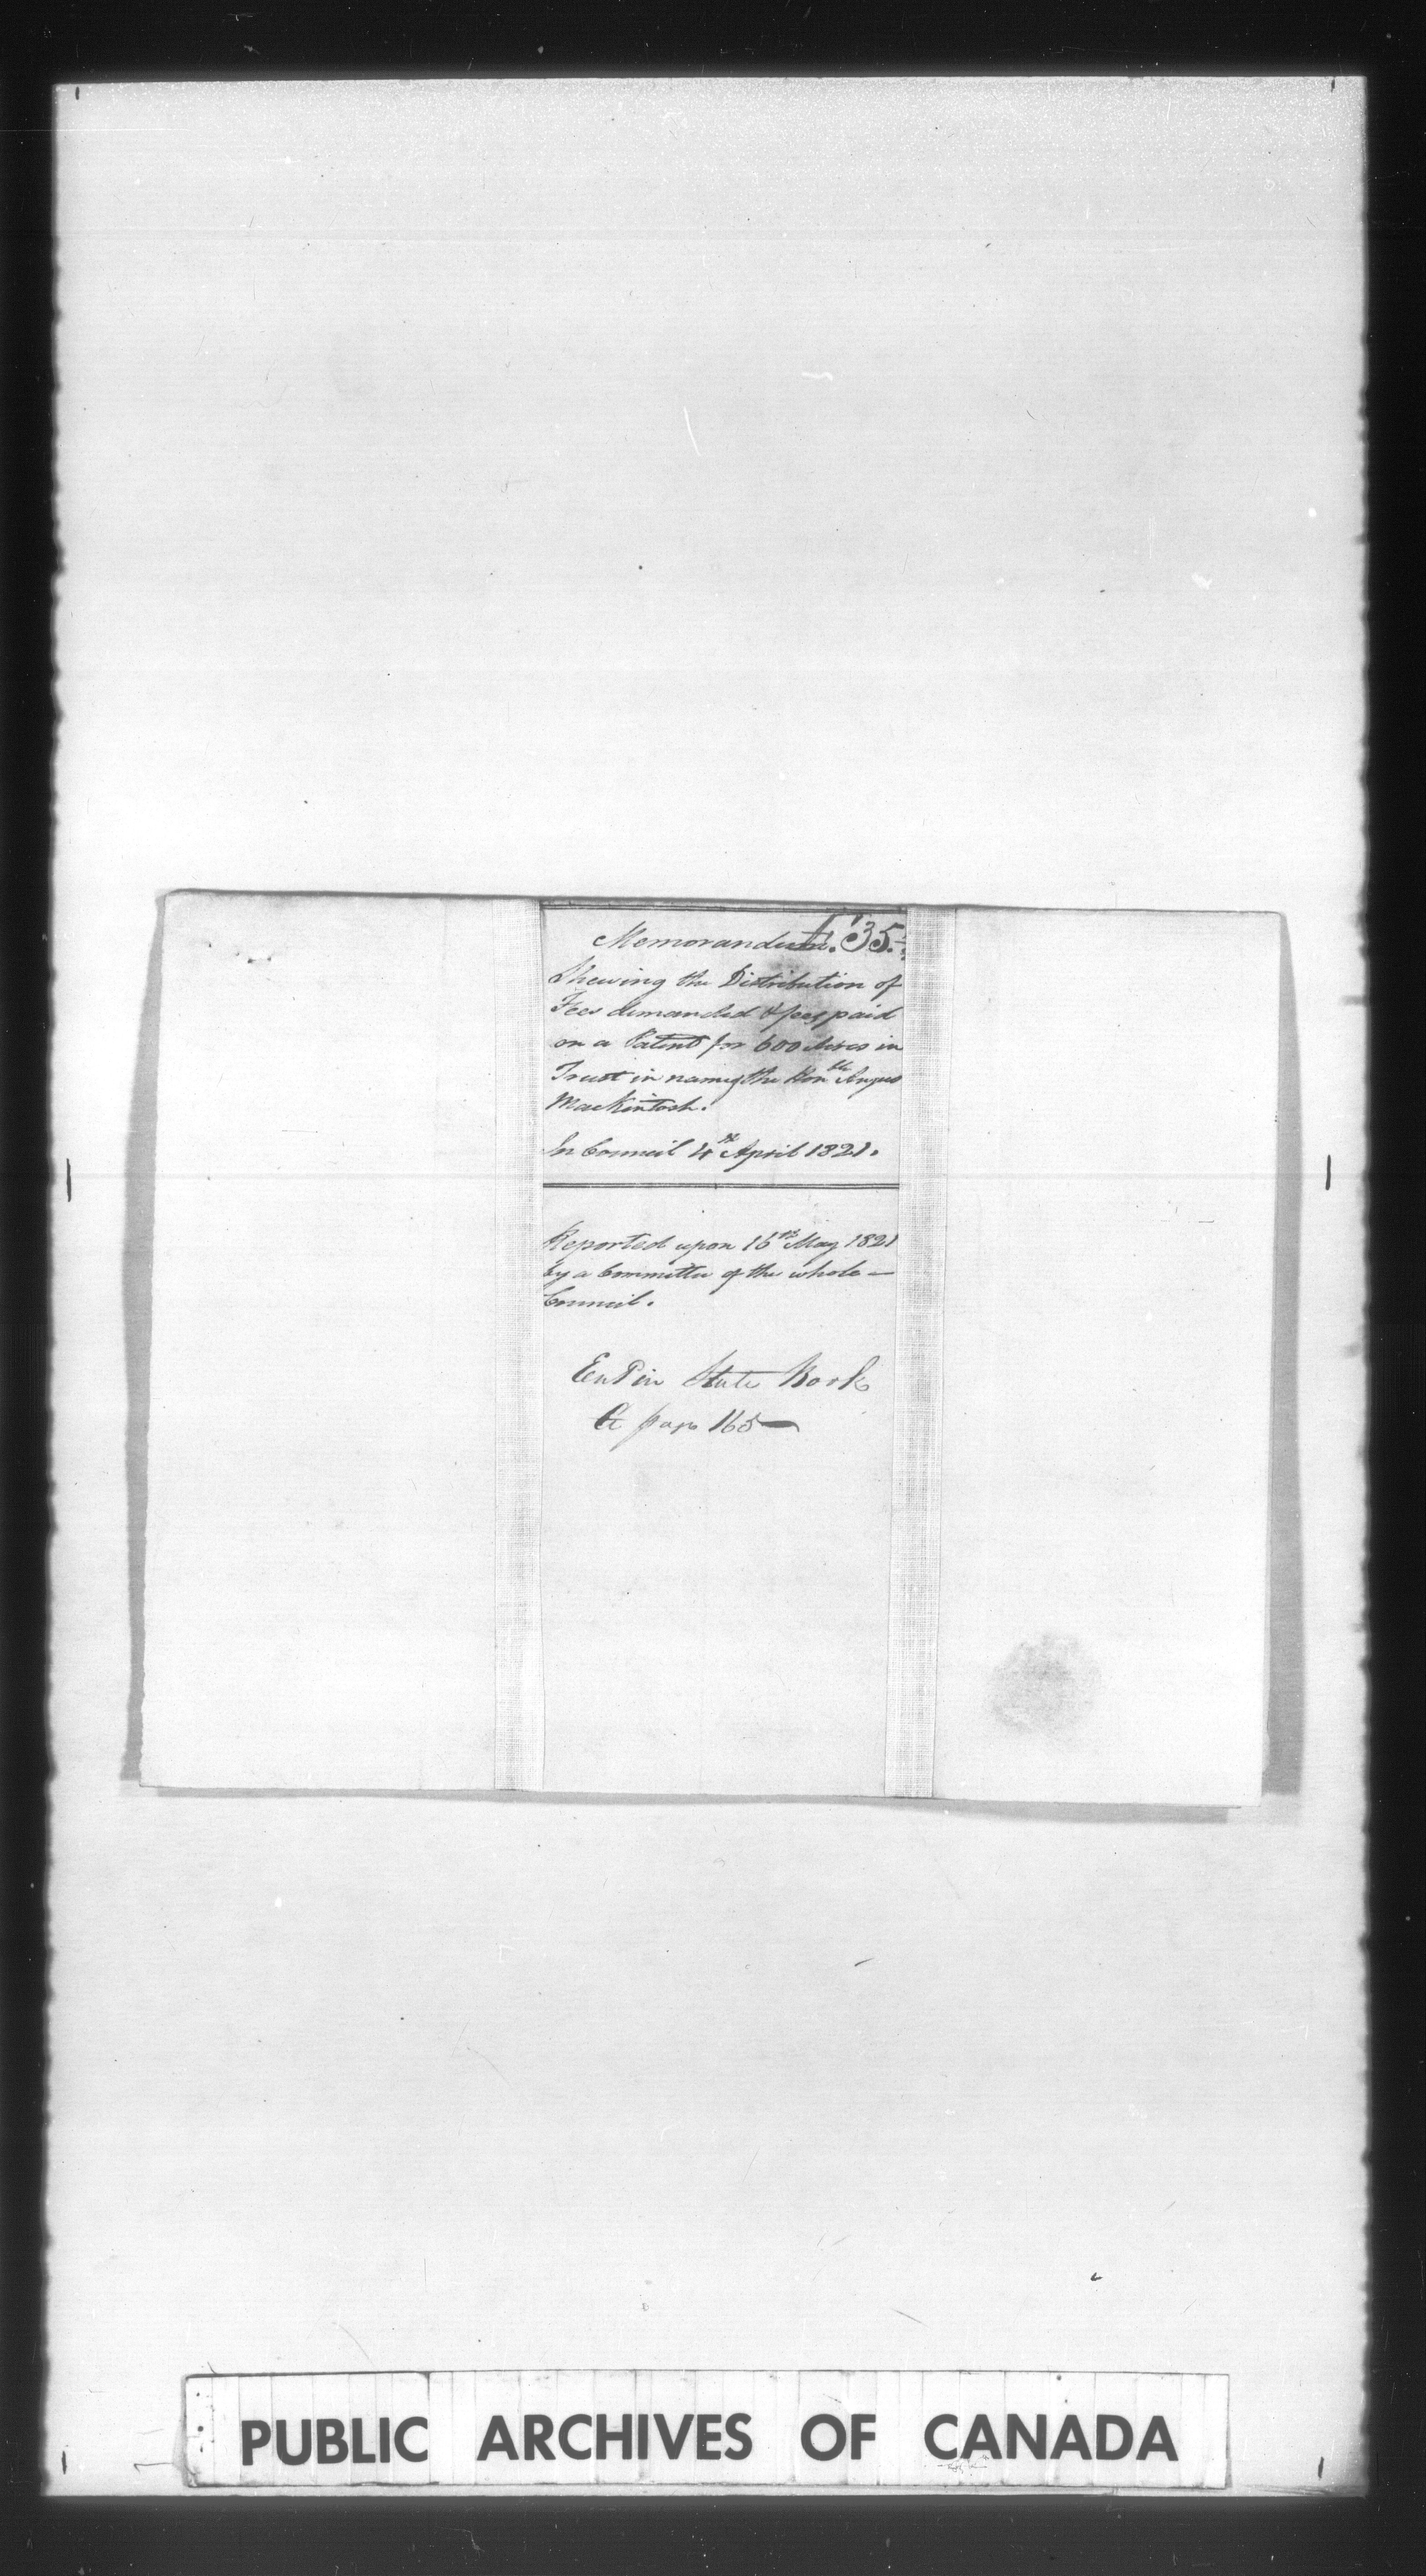 Memorandum. 35.
Shewing the Distribution of
Fees demanded & fees paid
on a Patent for 600 Acres in
Trust in name of the Honble Angus
Mackintosh.
In Council 4th April 1821.
Reported upon 16th May 1821
by a Committee of the whole —
Council.
Entd in State Book
G page 165 —
PUBLIC ARCHIVES OF CANADA